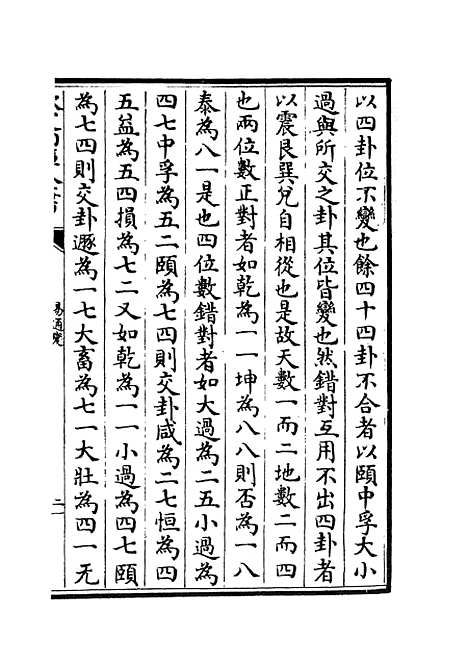 以四卦位不變也餘四十四卦不合者以頤中孚大小
過與所交之卦其位皆變也然錯對互用不出四卦者
以震艮巽兌自相從也是故天數一而二地數二而四
也兩位數正對者如乾為一一坤為八八則否為一八
泰為八一是也四位數錯對者如大過為二五小過為
四七中孚為五二頤為七四則交卦咸為二七恒為四
五益為五四損為七二又如乾為一一小過為四七頤
為七四則交卦遯為一七大畜為七一大壯為四一无
易通變